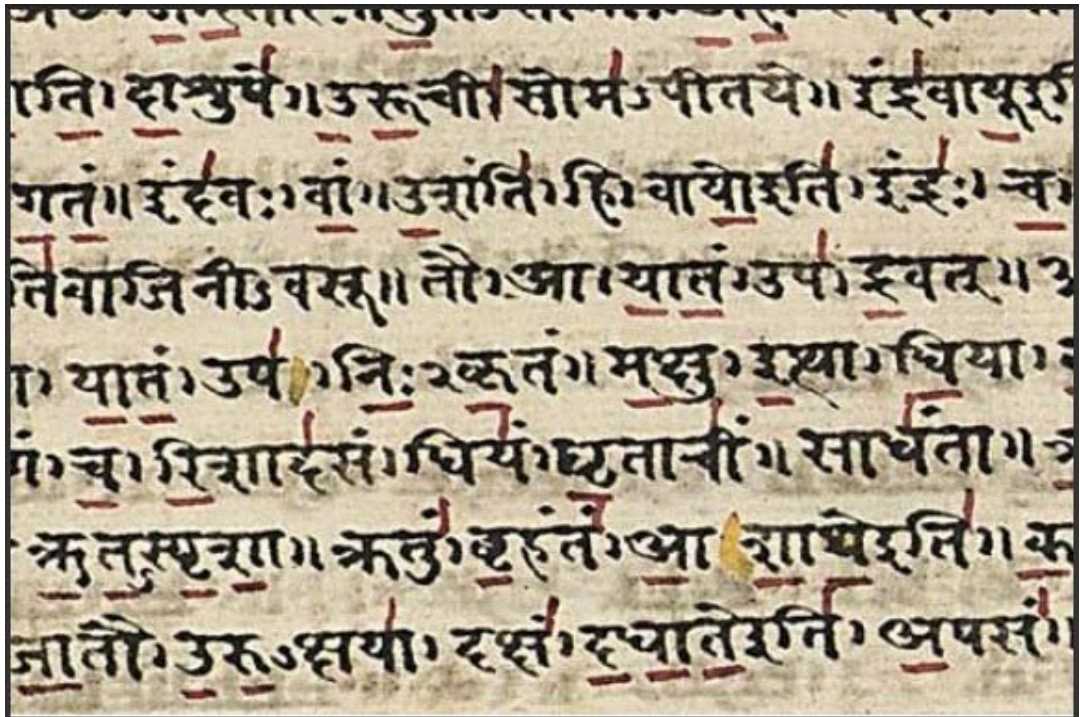 ाति। दाशुषे॥ उरूची। सोमऽपीतये॥ इंद्रवायूइति
गतं॥ इंदवः। वां॥ उशंति। हि। वायोइति। इंद्रः। च।
तिवाजिनीऽवसू॥ तौ। आ। यातं। उप। द्रवत्॥
यातं। उप। निःऽकृतं॥ मक्षु। इत्था। धिया।
च। रिशादसं। धियं। घृताचीं॥ साधंता॥
ऋतऽस्पृशा॥ ऋतुं। बृहंतं। आशाथेइति॥ क
जातौ। उरुऽक्षया। दक्षं। दधातेइति। अपसं॥